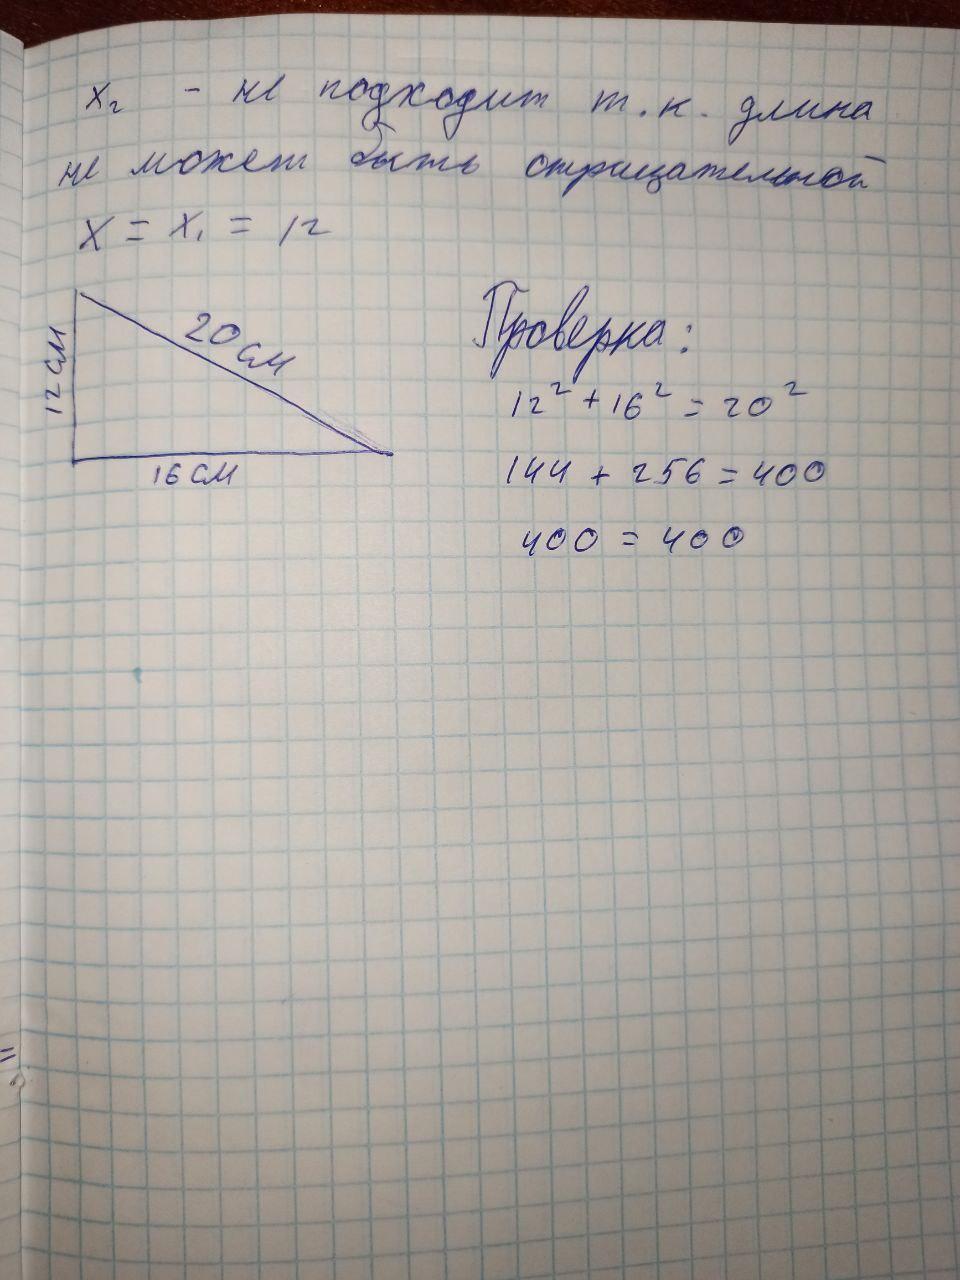 x₂ - не подходит т.к. длина
не может быть отрицательной
X = X₁ = 12
12 см
20 см
16 см
Проверка:
12² + 16² = 20²
144 + 256 = 400
400 = 400
=